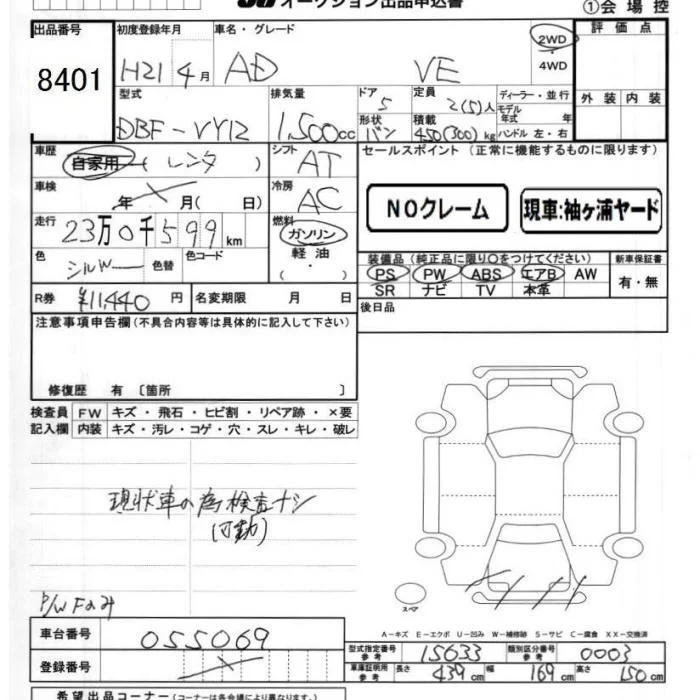 オークション出品申込書
①会場控
出品番号 8401
初度登録年月 H21年4月
車名・グレード AD VE
2WD ・4WD
評価点
外装 内装
型式 DBF-VY12
排気量 1,500cc
ドア 5
形状 バン
定員 2(5)人
積載 450(300)kg
ディーラー・並行
モデル年式 年
ハンドル 左・右
車歴 自家用(レンタ)
シフト AT
セールスポイント(正常に機能するものに限ります)
車検 年 月(日)
冷房 AC
NOクレーム
現車:袖ヶ浦ヤード
走行 23万0千599km
燃料 ガソリン
軽油
( ・ )
色 シルバー 色替 色コード
装備品(純正品に限り〇をつけてください)
PS PW ABS エアB AW
SR ナビ TV 本革
新車保証書
有・無
R券 ¥11,440円 名変期限 月 日
後日品
注意事項申告欄(不具合内容等は具体的に記入して下さい)
修復歴 有〔箇所 〕
検査員 FW キズ・飛石・ヒビ割・リペア跡・×要
記入欄 内装 キズ・汚レ・コゲ・穴・スレ・キレ・破レ
現状車の為検査ナシ
(可動)
P/W Fのみ
スペア
A-キズ E-エクボ U-凹み W-補修跡 S-サビ C-腐食 XX-交換済
車台番号 055069
登録番号
型式指定番号 参考 15633
類別区分番号 参考 0003
車庫証明用 参考 長さ 439cm 幅 169cm 高さ 150cm
希望出品コーナー(コーナーは各会場により異なります)